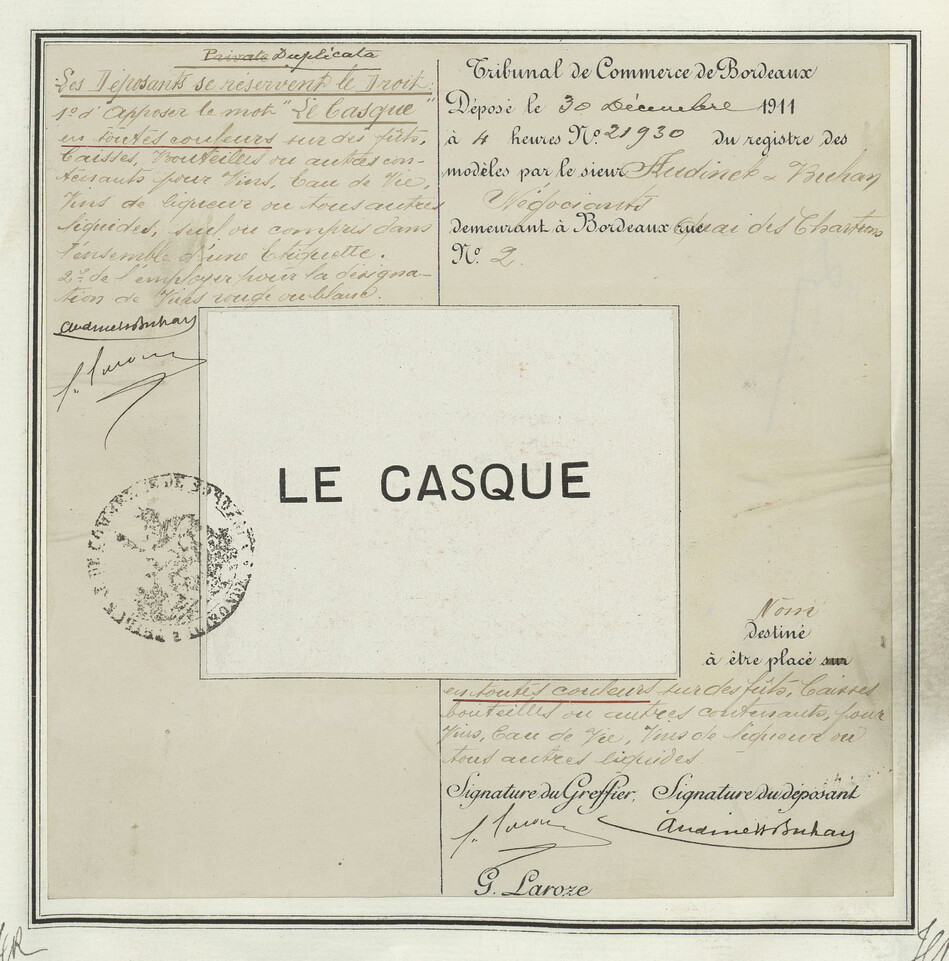 Duplicata
Les Déposants se réservent le Droit:
1º d'apposer le mot "Le Casque"
en toutes couleurs sur des fûts,
Caisses, Bouteilles ou autres con-
tenants pour Vins, Eau de Vie,
Vins de liqueur ou tous autres
liquides, seul ou compris dans
l'ensemble d'une Etiquette.
2º de l'employer pour la désigna-
tion de Vins rouge ou blanc.
Audinet & Buhan
Tribunal de Commerce de Bordeaux
Déposé le 30 Décembre 1911
à 4 heures Nº 21930 du registre des
modèles par le sieur Audinet & Buhan
Négociants
demeurant à Bordeaux rue Quai des Chartrons
Nº 2.
LE CASQUE
Nom
Destiné
à être placé sur
en toutes couleurs sur des fûts, Caisses
bouteilles ou autres contenants, pour
Vins, Eau de Vie, Vins de liqueur ou
tous autres liquides.
Signature du Greffier, Signature du déposant
Audinet & Buhan
G. Laroze